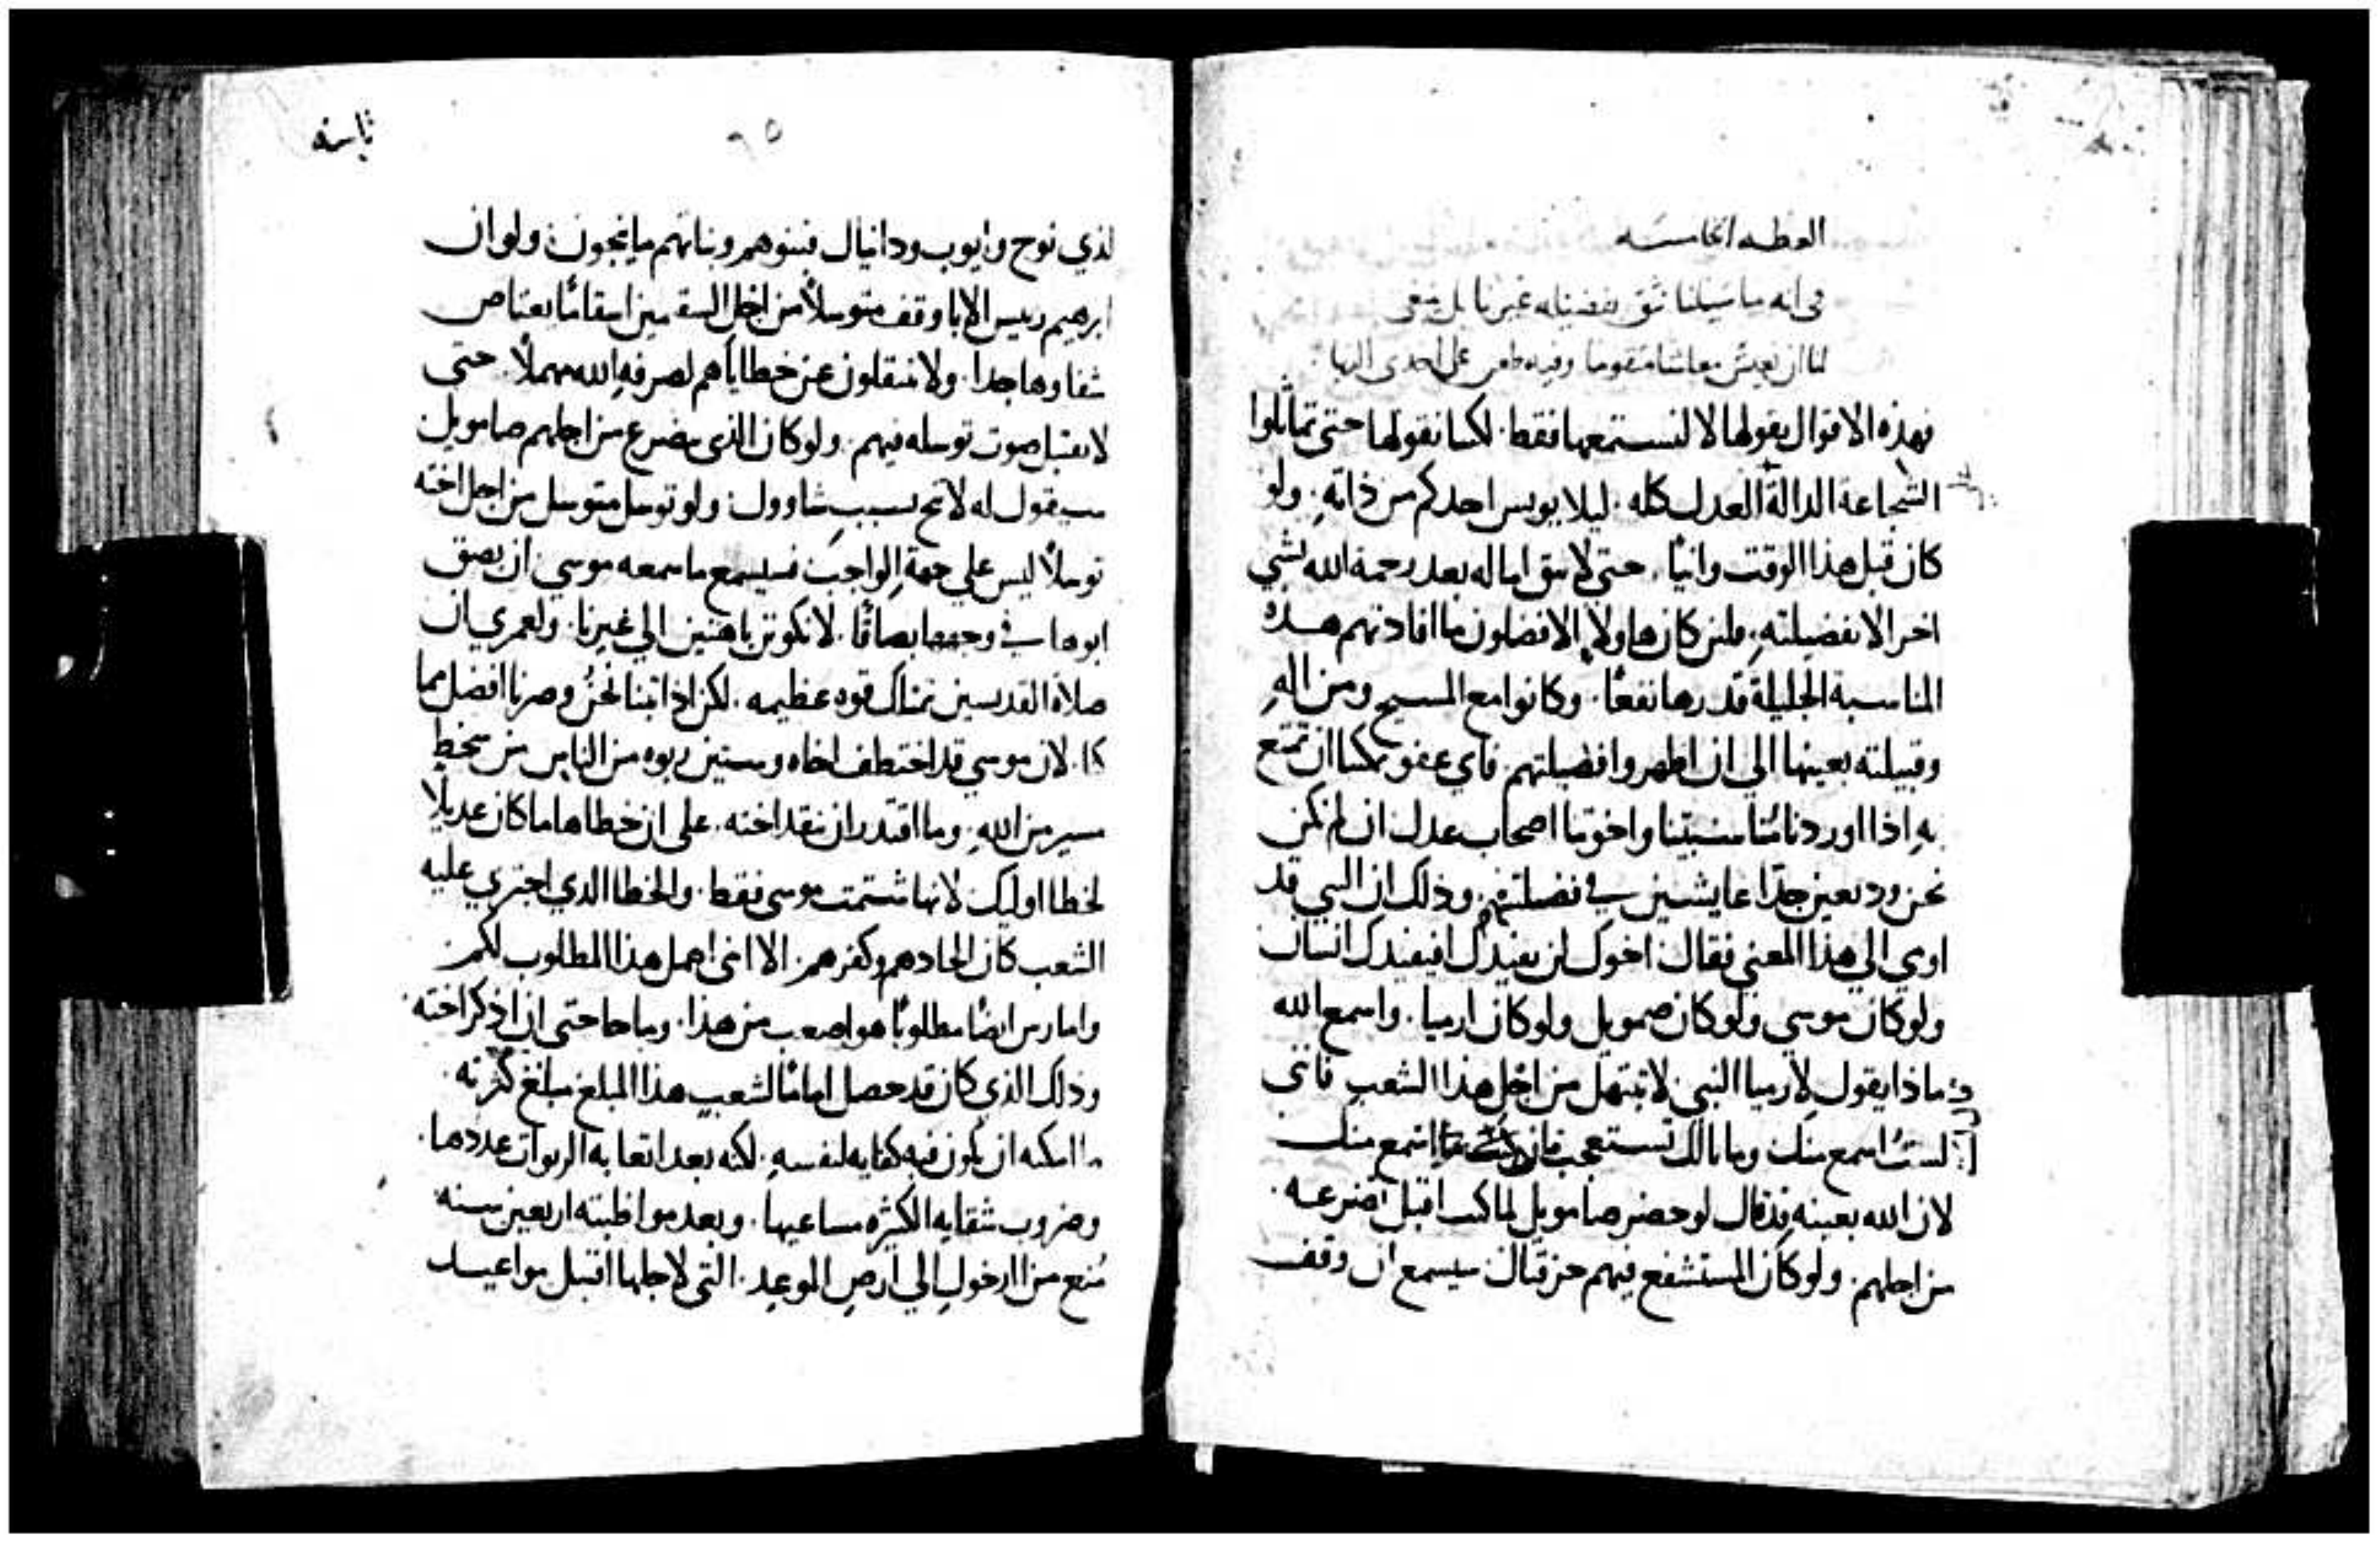 العظه الخامسه
في انه ما سبيلنا نثق بفضيله غيرنا بل ينبغي
لنا ان نعيش معاشا مقوما وفيه طعن على احدى الهبا
فهذه الاقوال يقولها لا لنستمعها فقط. لكننا نقولها حتى تماثلوا
الشجاعة الدالة العدل كله. ليلا يويس احدكم من ذاته. ولو
كان قبل هذا الوقت وانيًا. حتى لا يبق اماله بعد رحمة الله بشي
اخر الا بفضيلته. فلين كان هاولا الافضلون ما افادتهم هذه
المناسبة الجليلة قدرها نفعًا. وكانوا مع المسيح ومن اله
وقبيلته بعينها الي ان اظهروا فضيلتهم. فاي عفو يمكننا ان نتمتع
به اذا اوردنا مناسبتنا واخوتنا اصحاب عدل ان لم نكن
نحن وديعين جدًا عايشين في فضيلتهم. وذلك ان النبي قد
اوي الي هذا المعني فقال اخوك لن يفيدك افيفيدك انسان
ولو كان موسي ولو كان صمويل ولو كان ارميا. واسمع الله
ماذا يقول لارميا النبي لا تبتهل من اجل هذا الشعب فاني
لست اسمع منك وما بالك تستعجب فان اسمع منك
لان الله بعينه قد قال لو حضر صامويل لما كنت اقبل تضرعه
من اجلهم. ولو كان المستشفع فيهم حزقيال سيسمع ان وقف
ثامنه
٩٥
لذي نوح وايوب ودانيال فبنوهم وبناتهم ما ينجون ولو ان
ابرهيم رييس الابا وقف متوسلاً من اجل السقمين اسقامًا يعتاص
شفاوها جدا. ولا ينتقلون عن خطاياهم لصرفه الله مهملاً. حتى
لا يقتبل صوت توسله فيهم. ولو كان الذي يضرع من اجلهم صامويل
سيقول له لا تنح بسبب شاوول. ولو توسل متوسل من اجل اخته
توسلاً ليس علي جهة الواجب فسيسمع ما سمعه موسي ان بصق
ابوها في وجهها بصاقًا. لا نكونن باهتين الي غيرنا. ولعمري ان
صلاة القديسين تمتلك قوه عظيمه. لكن اذا تبنا نحن وصرنا افضل مما
كنا. لان موسي قد اختطف اخاه وستين ربوه من الناس من سخط
سير من الله. وما اقتدر ان ينقد اخته. على ان خطاها ما كان عديلاً
لخطا اوليك لانها شتمت موسي فقط. والخطا الذي اجتري عليه
الشعب كان الحادهم وكفرهم. الا اني اهمل هذا المطلوب لكم
وامارس ايضًا مطلوبًا هو اصعب من هذا. وما حاجتي ان اذكر اخته
وذلك الذي كان قد حصل امامًا لشعب هذا المبلغ مبلغ كثرته
ما امكنه ان يكون فيه كفايه لنفسه. لكنه بعد اتعابه الربوات عددها.
وضروب شقايه الكثيره مساعيها. وبعد مواظبته اربعين سنه
مُنع من الدخول الي ارض الموعد. التي لاجلها اقتبل مواعيد